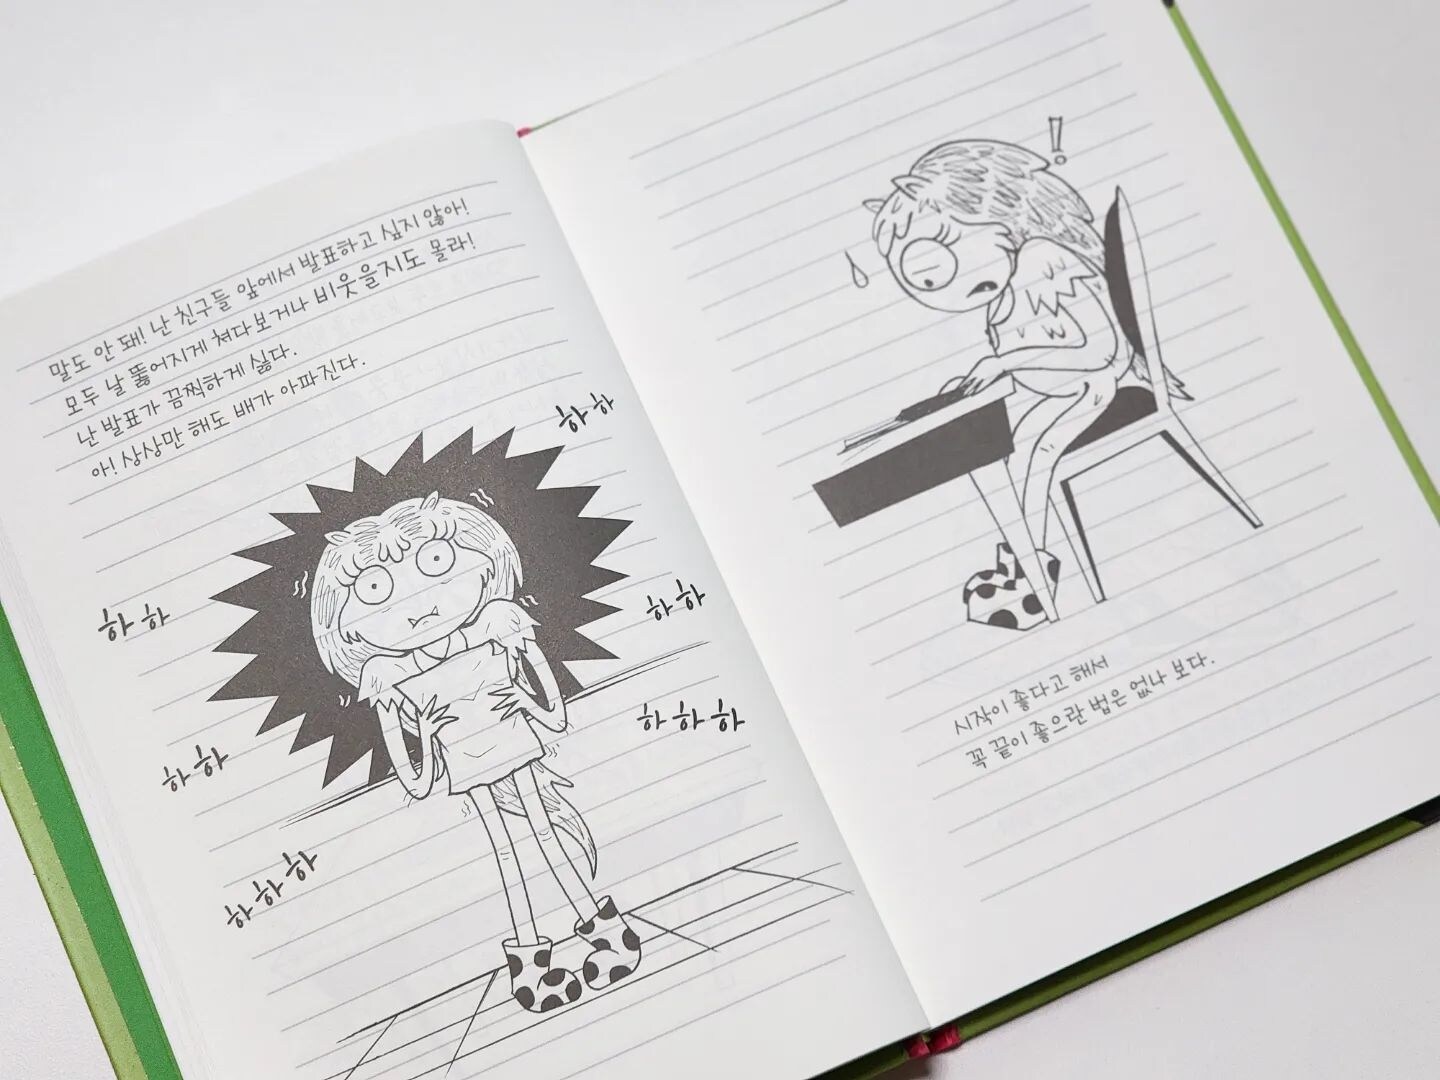 말도 안 돼! 난 친구들 앞에서 발표하고 싶지 않아!
모두 날 뚫어지게 쳐다보거나 비웃을지도 몰라!
난 발표가 끔찍하게 싫다.
아! 상상만 해도 배가 아파진다.
하 하
하 하
하 하
하 하 하
하 하
하 하 하
!
시작이 좋다고 해서
꼭 끝이 좋으란 법은 없나 보다.